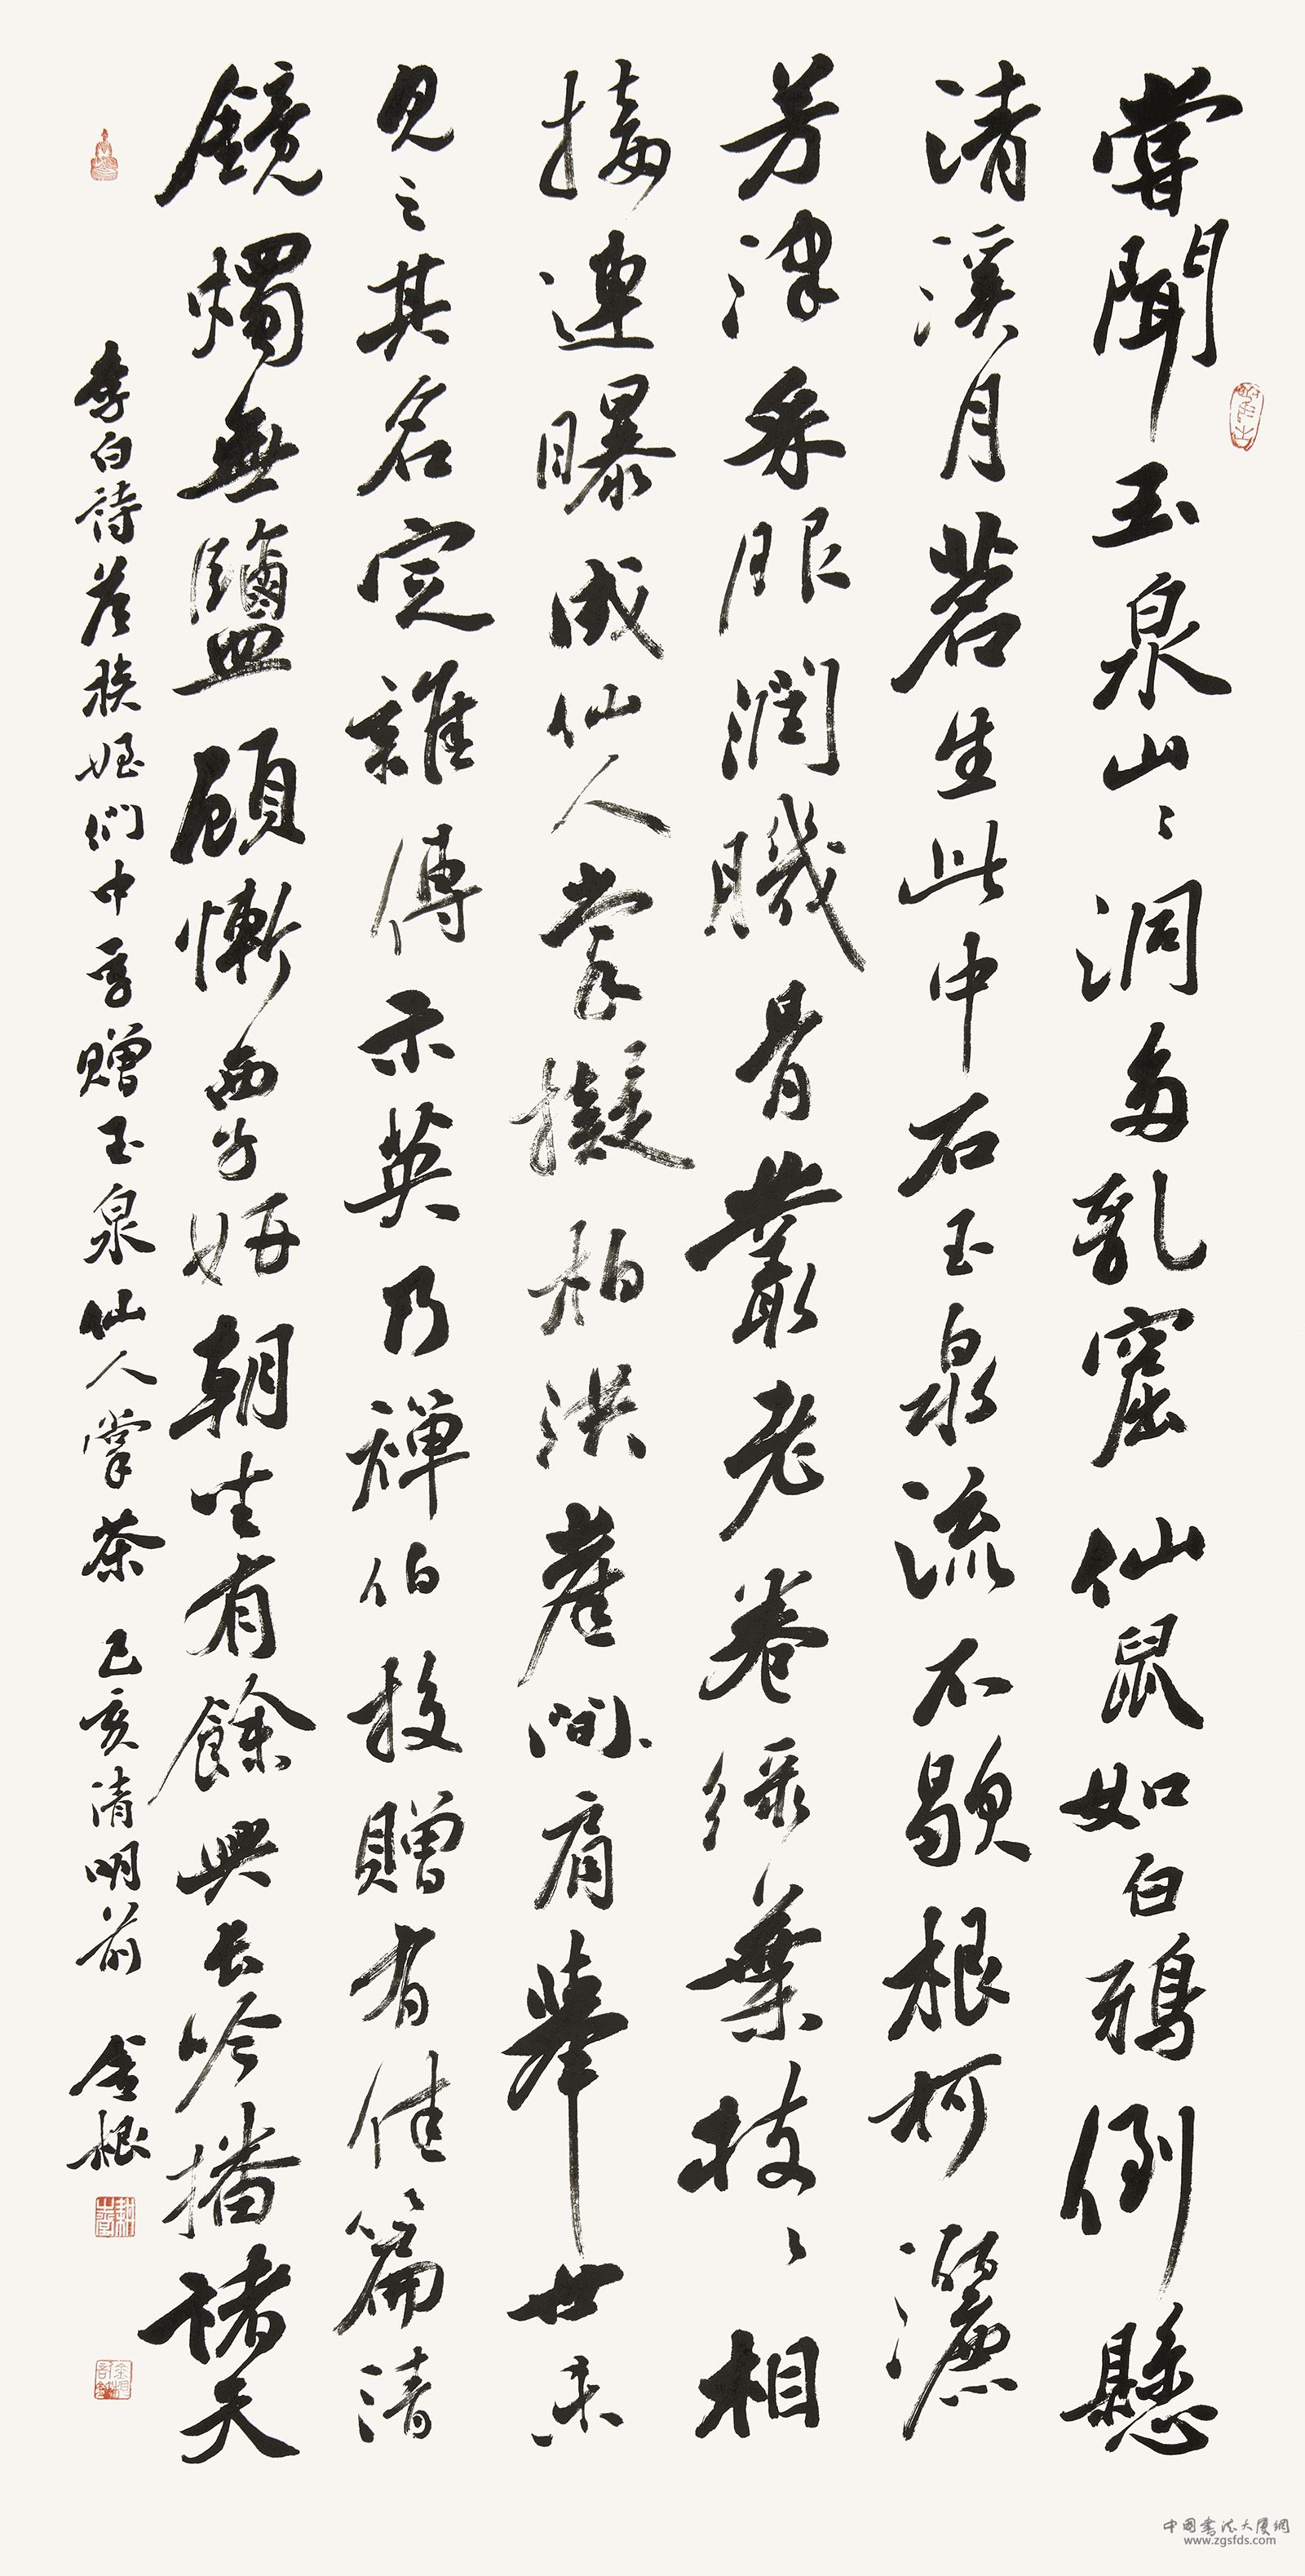 嘗聞玉泉山々洞多乳窟仙鼠如白鴉倒懸
清溪月茗生此中石玉泉流不歇根柯灑
芳津采服潤肌骨叢老卷綠葉枝々相
接連曝成仙人掌擬拍洪崖間肩舉世未
見之其名定誰傳示英乃禪伯投贈有佳篇清
鏡燭無鹽顧慚西子妍朝坐有餘興長吟播諸天
李白詩答族姪們中孚贈玉泉仙人掌茶 己亥清明前 金根
中国書法大厦網
www.zgsfds.com